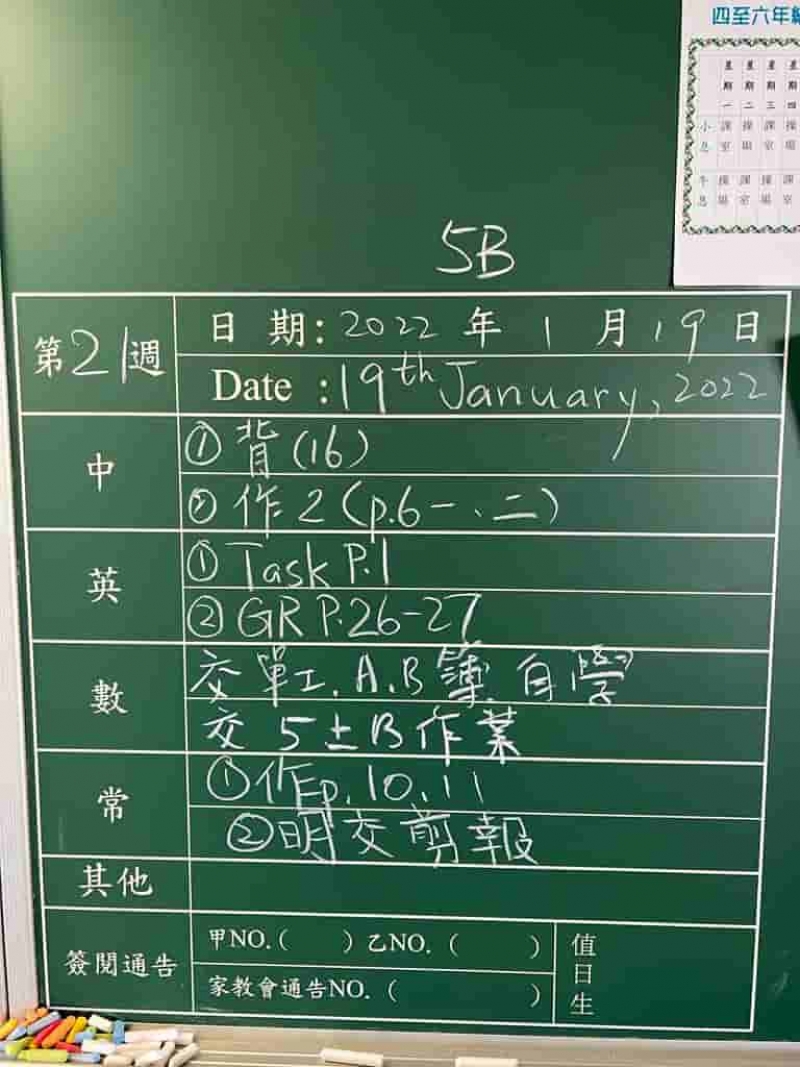 四至六年級
星期一 星期二 星期三 星期四
小息 課室 操場 課室 操場
午息 操場 課室 操場 課室
5B
第21週
日 期: 2022 年 1 月 19 日
Date : 19th January, 2022
中
① 背 (16)
② 作 2 (p.6 一、二)
英
① Task P.1
② GR P.26-27
數
交 單工. A.B 簿 自學
交 5上B 作業
常
① 作E p.10, 11
② 明交剪報
其他
簽閱通告
甲NO. ( ) 乙NO. ( )
家教會通告NO. ( )
值日生